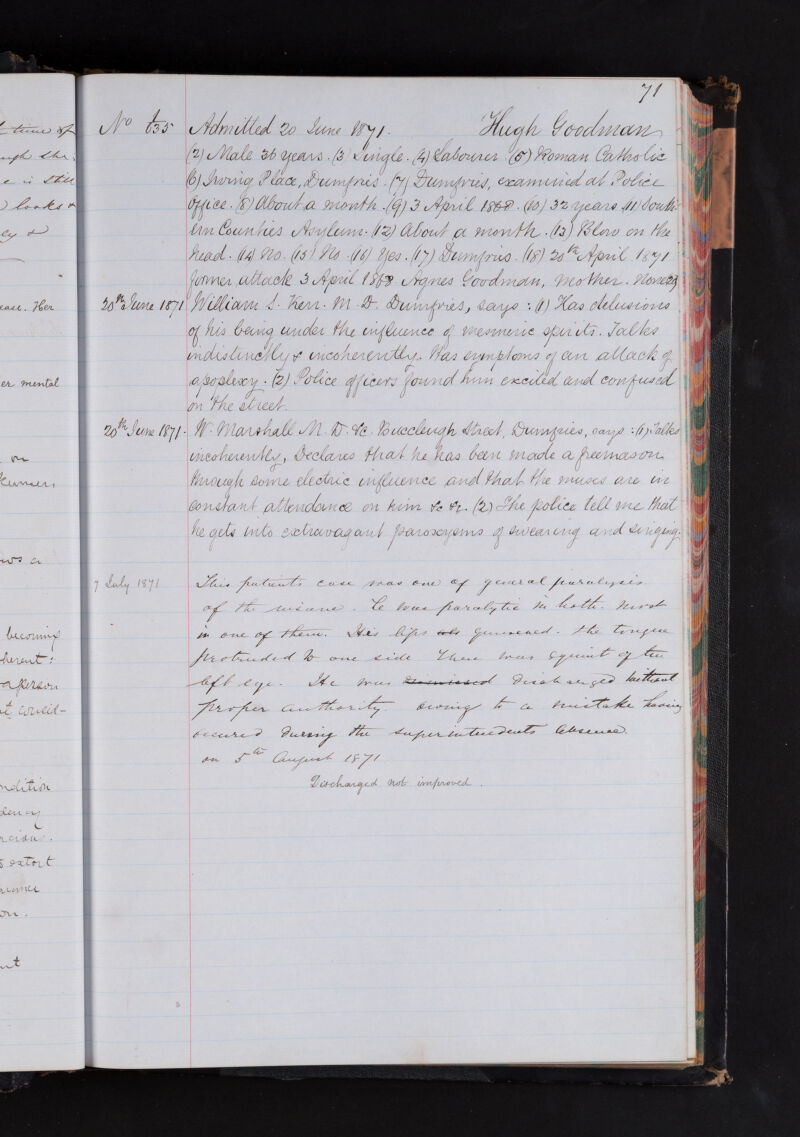 71
No 635 Admitted 20 June 1871. Hugh Goodman
(2) Male 36 years. (3) Single. (4) Labourer. (5) Roman Catholic
(6) Irving Place, Dumfries. (7) Dumfries, examined at Police
Office. (8) About a month. (9) 3 April 1868. (10) 32 years (11) South-
ern Counties Asylum. (12) About a month. (13) Blow on the
head. (14) No. (15) No. (16) Yes. (17) Dumfries. (18) 20th April 1871
former attack 3 April 1868 Agnes Goodman, mother. None
20th June 1871 William S. Kerr. M.D. Dumfries, says: (1) Has delusions
of his being under the influence of mesmeric spirits. Talks
indistinctly & incoherently. Has symptoms of an attack of
apoplexy. (2) Police officers found him excited and confused
on the street.
20th June 1871. W. Marshall M.D. &c. Buccleugh Street, Dumfries, says: (1) Talks
incoherently, Declares that he has been made a freemason
through some electric influence and that the muses are in
constant attendance on him &c &c. (2) The police tell me that
he gets into extravagant paroxysms of swearing and singing.
7 July 1871 This patients case was one of general paralysis
of the insane. He was paralytic in both. most
in one of them. His lips quivered. the tongue
protruded to one side There was squint of the
left eye. He was dismissed discharged without
proper authority. owing to a mistake having
occured during the superintendents absence.
on 5th August 1871
Discharged not improved.
time of
still
looks &
Her
er mental
on
becoming
herent:
a person
ndition
extort
on.